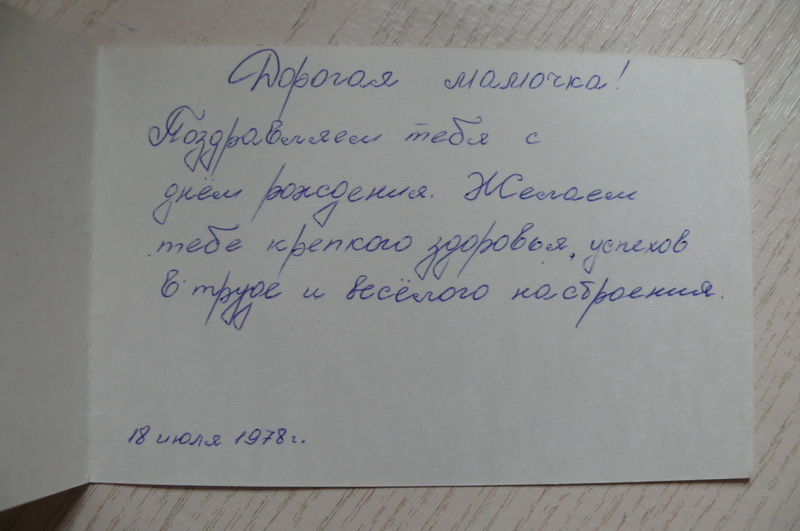 Дорогая мамочка!
Поздравляем тебя с
днём рождения. Желаем
тебе крепкого здоровья, успехов
в труде и весёлого настроения.
18 июля 1978г.